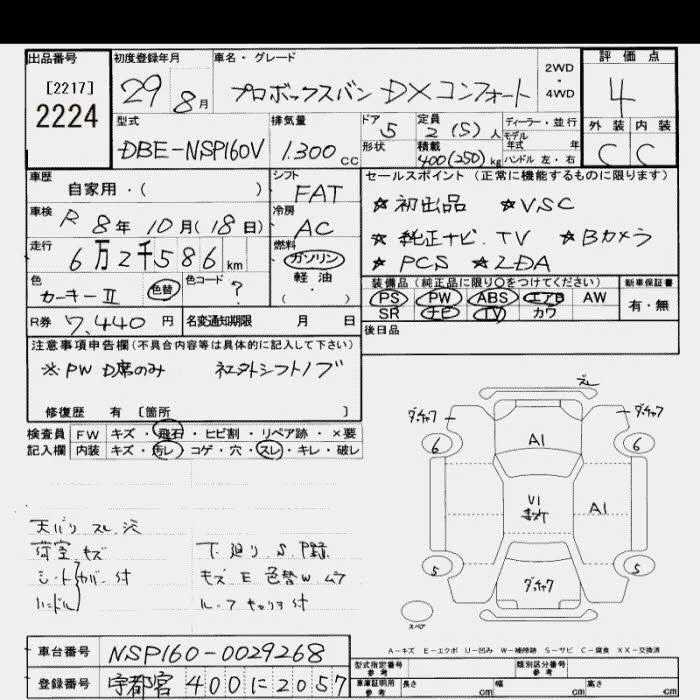 出品番号
[2217]
2224
初度登録年月
29 8月
車名・グレード
プロボックスバン DXコンフォート
2WD
・
4WD
評価点
4
外装 内装
C C
型式
DBE-NSP160V
排気量
1.300cc
ドア 5
形状
定員
2 (5) 人
積載
400(250)kg
ディーラー・並行
モデル
年式 年
ハンドル 左・右
車歴
自家用・( )
車検 R 8年 10月(18日)
走行
6万2千586km
色
カーキーⅡ 色替
色コード ?
シフト
FAT
冷房
AC
燃料
ガソリン
軽油
( ・ )
R券 7,440 円
名変通知期限 月 日
セールスポイント (正常に機能するものに限ります)
★初出品 ★VSC
★純正ナビ.TV ★Bカメラ
★PCS ★LDA
装備品 (純正品に限り○をつけてください)
PS PW ABS エアB AW
SR ナビ TV カワ
新車保証書
有・無
後日品
注意事項申告欄(不具合内容等は具体的に記入して下さい)
※PW D席のみ 社外シフトノブ
修復歴 有 [箇所 ]
検査員 FW キズ・飛石・ヒビ割・リペア跡・×要
記入欄 内装 キズ・汚レ・コゲ・穴・スレ・キレ・破レ
天バリ スレ 穴
荷室 キズ
シート カバー付
ハンドル
下廻り S
キズ E 色替W ムラ
ルーフキャリヤ付
スレ
ダッチャク
ダッチャク
6
6
A1
V1
キズ
A1
5
5
ダッチャク
スペア
A-キズ E-エクボ U-凹み W-補修跡 S-サビ C-腐食 XX-交換済
車台番号 NSP160-0029268
登録番号 宇都宮 400に2057
型式指定番号
参考
類別区分番号
参考
車庫証明用
参考
長さ cm 幅 cm 高さ cm